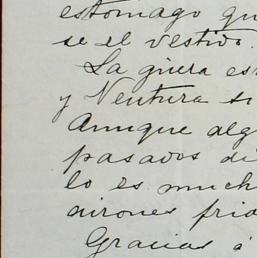 estómago qu
se el vestido.
La güera es
y Ventura s
Aunque alg
pasados di
lo es much
airones frio
Gracias á